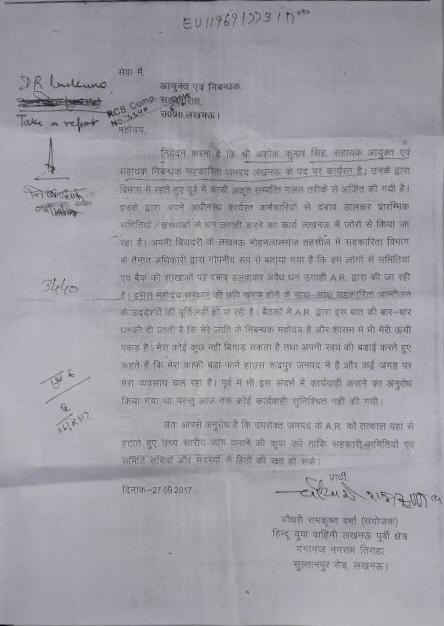 EU119691DD317
सेवा में,
आयुक्त एवं निबन्धक,
सहकारिता
उ0प्र0, लखनऊ।
D R Lucknow
Take a report
RCS Comp.
No. 3340
महोदय,
निवेदन करना है कि श्री अशोक कुमार सिंह, सहायक आयुक्त एवं
सहायक निबन्धक सहकारिता जनपद लखनऊ के पद पर कार्यरत है। उनके द्वारा
विभाग में रहते हुए पूर्व में काफी अकूत सम्पत्ति गलत तरीके से अर्जित की गयी है।
इनके द्वारा अपने अधीनस्थ कार्यरत कर्मचारियों से दबाव डालकर प्रारम्भिक
समितियों/संस्थाओं से धन उगाही करने का कार्य लखनऊ में जोरों से किया जा
रहा है। अपनी बिरादरी के लखनऊ मोहनलालगंज तहसील में सहकारिता विभाग
के तैनात अधिकारी द्वारा गोपनीय रूप से बताया गया है कि हम लोगों से समितियों
एवं बैंक की शाखाओं पर दबाव डलवाकर अवैध धन उगाही A.R. द्वारा की जा रही
है। इससे महोदय सरकार की छवि खराब होने के साथ-साथ सहकारिता आन्दोलन
के उद्देश्यों की पूर्ति नहीं हो पा रही है। बैठकों में A.R. द्वारा इस बात की बार-बार
धमकी दी जाती है कि मेरे जाति के निबन्धक महोदय है और शासन में भी मेरी ऊंची
पकड है। मेरा कोई कुछ नहीं बिगाड़ सकता है तथा अपनी स्वयं की बडाई करते हुए
कहते हैं कि मेरा काफी बडा फार्म हाउस रूद्रपुर जनपद में है और कई जगह पर
मेरा व्यवसाय चल रहा है। पूर्व में भी इस संदर्भ में कार्यवाही कराने का अनुरोध
किया गया था परन्तु आज तक कोई कार्यवाही सुनिश्चित नहीं की गयी।
3440
अतः आपसे अनुरोध है कि उपरोक्त जनपद के A.R. को तत्काल यहां से
हटाते हुए उच्च स्तरीय जांच कराने की कृपा करें ताकि सहकारी समितियों एवं
समिति सचिवों और सदस्यों के हितों की रक्षा हो सके।
प्रार्थी
दिनांक-27.09.2017
चौधरी रामकृष्ण वर्मा (संयोजक)
हिन्दू युवा वाहिनी लखनऊ पूर्वी क्षेत्र
गंगागंज नगराम तिराहा
सुल्तानपुर रोड, लखनऊ।